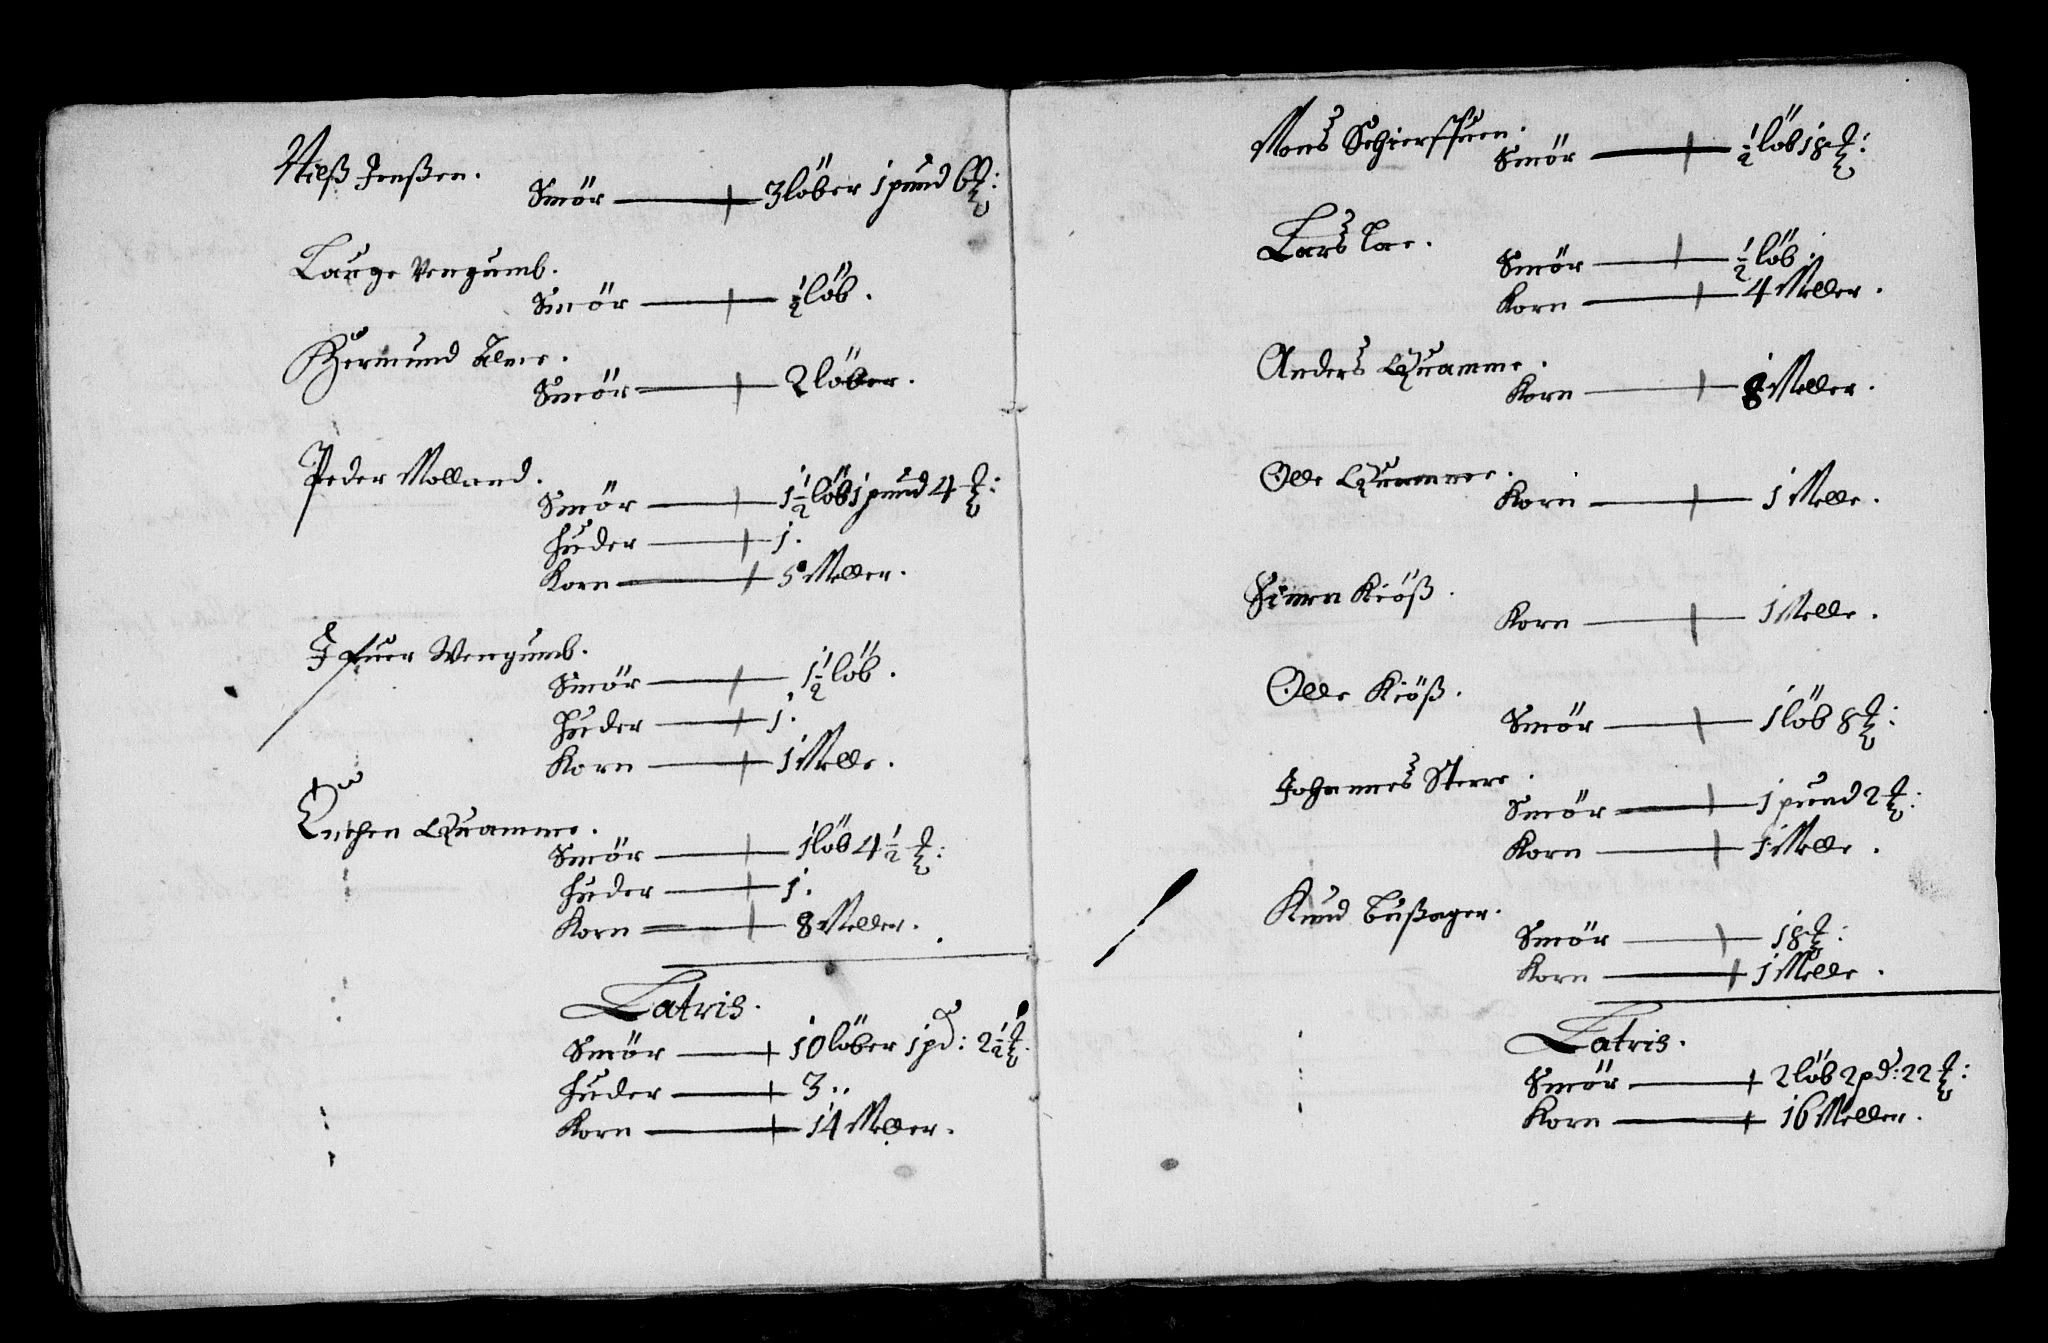 Nilß Jenßen.
Smör — 3 löber 1 pund 6 ℔:
Lauge Vengumb.
Smör — ½ löb.
Giermund
Smör — 2 löber.
Peder Molland.
Smör — 1½ löb 1 pund 4 ℔:
Huder — 1.
Korn — 5 Meller.
Ifuer Wengumb.
Smör — 1½ löb.
Huder — 1.
Korn — 1 Melle.
Quamme.
Smör — 1 löb 4½ ℔:
Huder — 1.
Korn — 8 Meller.
Latris.
Smör — 10 löber 1 pd: 2½ ℔.
Huder — 3..
Korn — 14 Meller.
Mons
Smör — ½ löb 18 ℔:
Lars Lae.
Smör — ½ löb.
Korn — 4 Meller.
Anders Quamme.
Korn — 8 Meller.
Olle Quamme.
Korn — 1 Melle.
Simen Kiöß.
Korn — 1 Melle.
Olle Kiöß.
Smör — 1 löb 8 ℔:
Johannes Sterre.
Smör — 1 pund 2 ℔:
Korn — 1 Melle.
Knud Bußager.
Smör — 18 ℔:
Korn — 1 Melle.
Latris.
Smör — 2 löb 2 pd: 22 ℔:
Korn — 16 Meller.